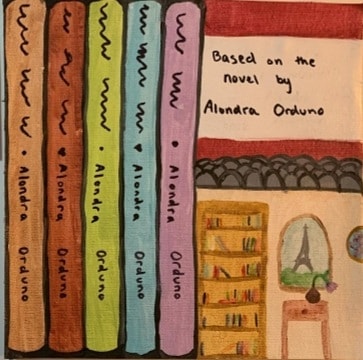 Alondra Orduno
Alondra Orduno
Alondra Orduno
Alondra Orduno
Alondra Orduno
Based on the
novel by
Alondra Orduno